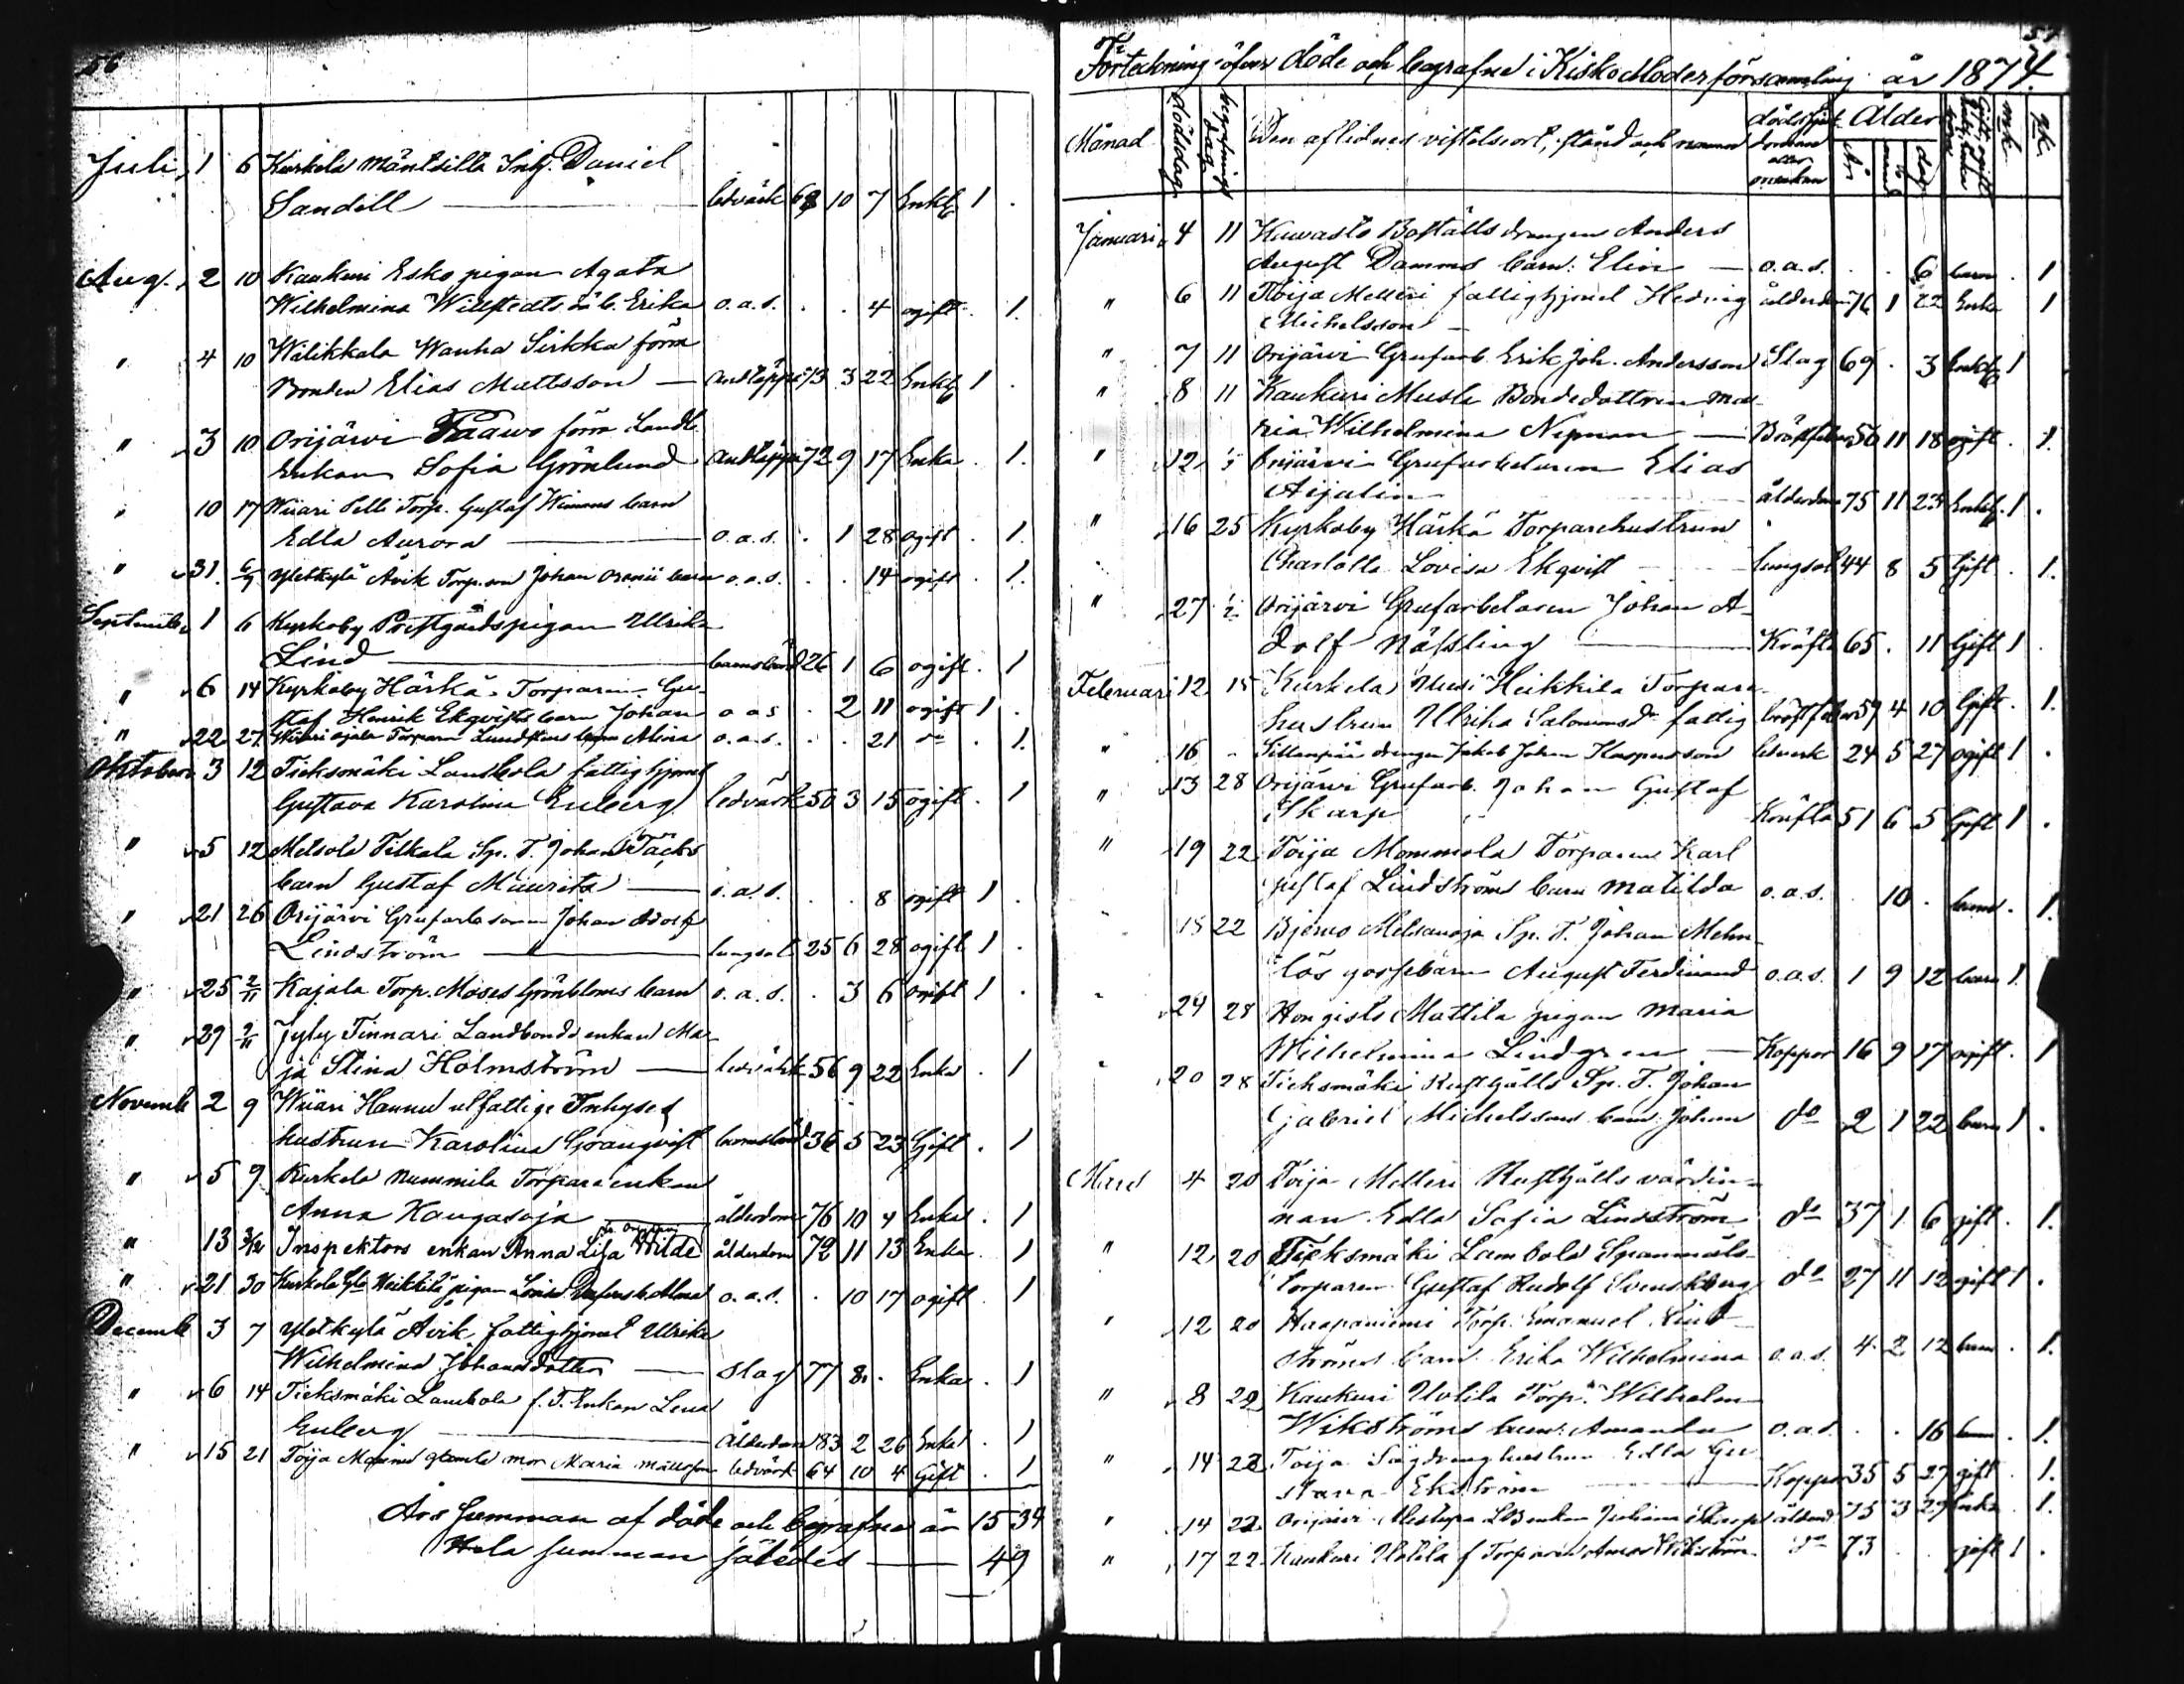 56
Juli 1 6 Kurkela Mäntsilla Inh. Daniel
Sandell — ledvärk 68 10 7 Enkl. 1 .
Aug. 2 10 Kaukuri Esko pigan Agata
Wilhelmina Erika o.a.s. . . 4 ogift . 1.
" 4 10 Wälikkala Wanha Sirkka förra
Bonden Elias Mattsson — andtäppa 73 3 22 Enkl. 1 .
" 3 10 Orijärvi Paawo förra Landb.
Enkan Sofia Grönlund andtäppa 72 9 17 Enka . 1.
" 10 17 Wiiari Pelli Torp. Gustaf Wimans barn
Edla Aurora — o.a.s. . 1 28 ogift . 1.
" 31 6/9 Yletkylä Åvik Torp. Johan barn o.a.s. . . 14 ogift . 1.
September 1 6 Kyrkoby Prestgårdspigan Ulrika
Lind — barnsbörd 26 1 6 ogift . 1
" 6 14 Kyrkoby Härkä Torparen Gu-
staf Henrik Ekqvists barn Johan o a s . 2 11 ogift 1 .
" 22 27 Wiiari Torparen barn Alina o.a.s. . . 21 do . 1.
Oktober 3 12 Tieksmäki Lambola fattighjonet
Gustava Karolina Enberg ledvärk 50 3 15 ogift . 1
" 5 12 Metsola Tilkala Sp. T. Johan Bäcks
barn Gustaf Maurits — o.a.s. . . 8 ogift 1 .
" 21 26 Orijärvi Grufarbetaren Johan Adolf
Lindström — lungsot 25 6 28 ogift 1 .
" 25 2/11 Kajala Torp. Moses Grönbloms barn o.a.s. . 3 6 ogift 1 .
" 29 2/11 Jyly Tinnari Landbonde enkan Ma-
ja Stina Holmström — ledvärk 56 9 22 Enka . 1
Novemb 2 9 Wiiari Hannu utfattige Inhyses
hustrun Karolina Granqvist barnsbörd 36 5 23 Gift . 1
" 5 9 Kurkela Nummila Torpare enkan
Anna Kangasoja — ålderdom 76 10 4 Enka . 1
" 13 3/12 Inspektors enkan Anna Lisa Wilde ålderdom 72 11 13 Enka . 1
" 21 30 Kurkela Heikkilä pigan Lovisa Alma o.a.s. . 10 17 ogift . 1
Decemb 3 7 Yletkylä Åvik fattighjonet Ulrika
Wilhelmina Johansdotter — Slag 77 8 . Enka . 1
" 6 14 Tieksmäki Lambola f. T. Enkan Lena
Enberg — Ålderdom 83 2 26 Enka . 1
" 15 21 Toija gamla mor Maria ledvärk 64 10 4 Gift . 1
Års summan af döde och begrafne är 15 34
Hela summan således — 49
57
Förteckning öfver döde och begrafne i Kisko Moderförsamling år 1874.
Månad dödsdag begrafnings dag Den aflidnes vistelseort, stånd och namn dödssjukdomen eller orsaken Ålder År mån. dag mk. qk.
Januari 4 11 Kawasto Boställs drängen Anders
August Damms barn: Elin — o.a.s. . . 6 barn . 1
" 6 11 Toija Melleri fattighjonet Hedvig ålderdom 76 1 22 Enka 1
Michelsson —
" 7 11 Orijärvi Grufarb. Erik Joh. Andersson Slag 69 . 3 Enkl. 1
" 8 11 Kaukuri Musla Bondedottren Ma-
ria Wilhelmina Nyman — Bröstfeber 56 11 18 ogift . 1.
" 12 Orijärvi Grufarbetaren Elias
Aijalin ålderdom 75 11 23 Enkl. 1 .
" 16 25 Kyrkoby Härkä Torparehustrun
Charlotta Lovisa Ekqvist lungsot 44 8 5 Gift . 1.
" 27 Orijärvi Grufarbetaren Johan A-
dolf Nässling — Kräfta 65 . 11 Gift 1
Februari 12 15 Kurkela Uusi Heikkila Torpare
hustrun Ulrika Salomonsdr fattig bröstfeber 59 4 10 Gift . 1.
" 16 - drängen Jakob Johan Kaspersson ledverk 24 5 27 ogift 1 .
" 13 28 Orijärvi Grufarb. Johan Gustaf
Skarp Kräfta 51 6 5 Gift 1 .
" 19 22 Toija Mommola Torparens Karl
Gustaf Lindströms barn Matilda o.a.s. . 10 . barn . 1.
" 18 22 Bjerno Metsanoja Sp. T. Johan Malm-
lös gossebarn August Ferdinand o.a.s. 1 9 12 barn 1.
" 24 28 Hongisto Mattila pigan Maria
Wilhelmina Lindgren — Koppor 16 9 17 ogift . 1
" 20 28 Tieksmäki Rusthålls Sp. T. Johan
Gabriel Michelssons barn: Johan do 2 1 22 barn 1 .
Mars 4 20 Toija Melleri Rusthålls värdin-
nan Edla Sofia Lindström do 37 1 6 gift . 1.
" 12 20 Tieksmäki Lambola Spanmåls-
torparen Gustaf Rudolf Svenskberg do 27 11 12 gift 1 .
" 12 20 Haapaniemi Torp. Emanuel Lind-
ströms barn: Erika Wilhelmina o.a.s. 4 2 12 barn . 1.
" 8 22 Kaukuri Uotila Torp. Wilhelm
Wikströms barn: Amanda o.a.s. . . 16 barn . 1.
" 14 22 Toija Sågdrenghustrun Edla Gu-
stava Ekström Koppor 35 5 27 gift . 1.
" 14 22 Orijärvi enkan Juliana ålderd. 75 3 29 Enka . 1.
" 17 22 Kaukuri Uotila f. Torparen Wikström do 73 . . gift 1 .